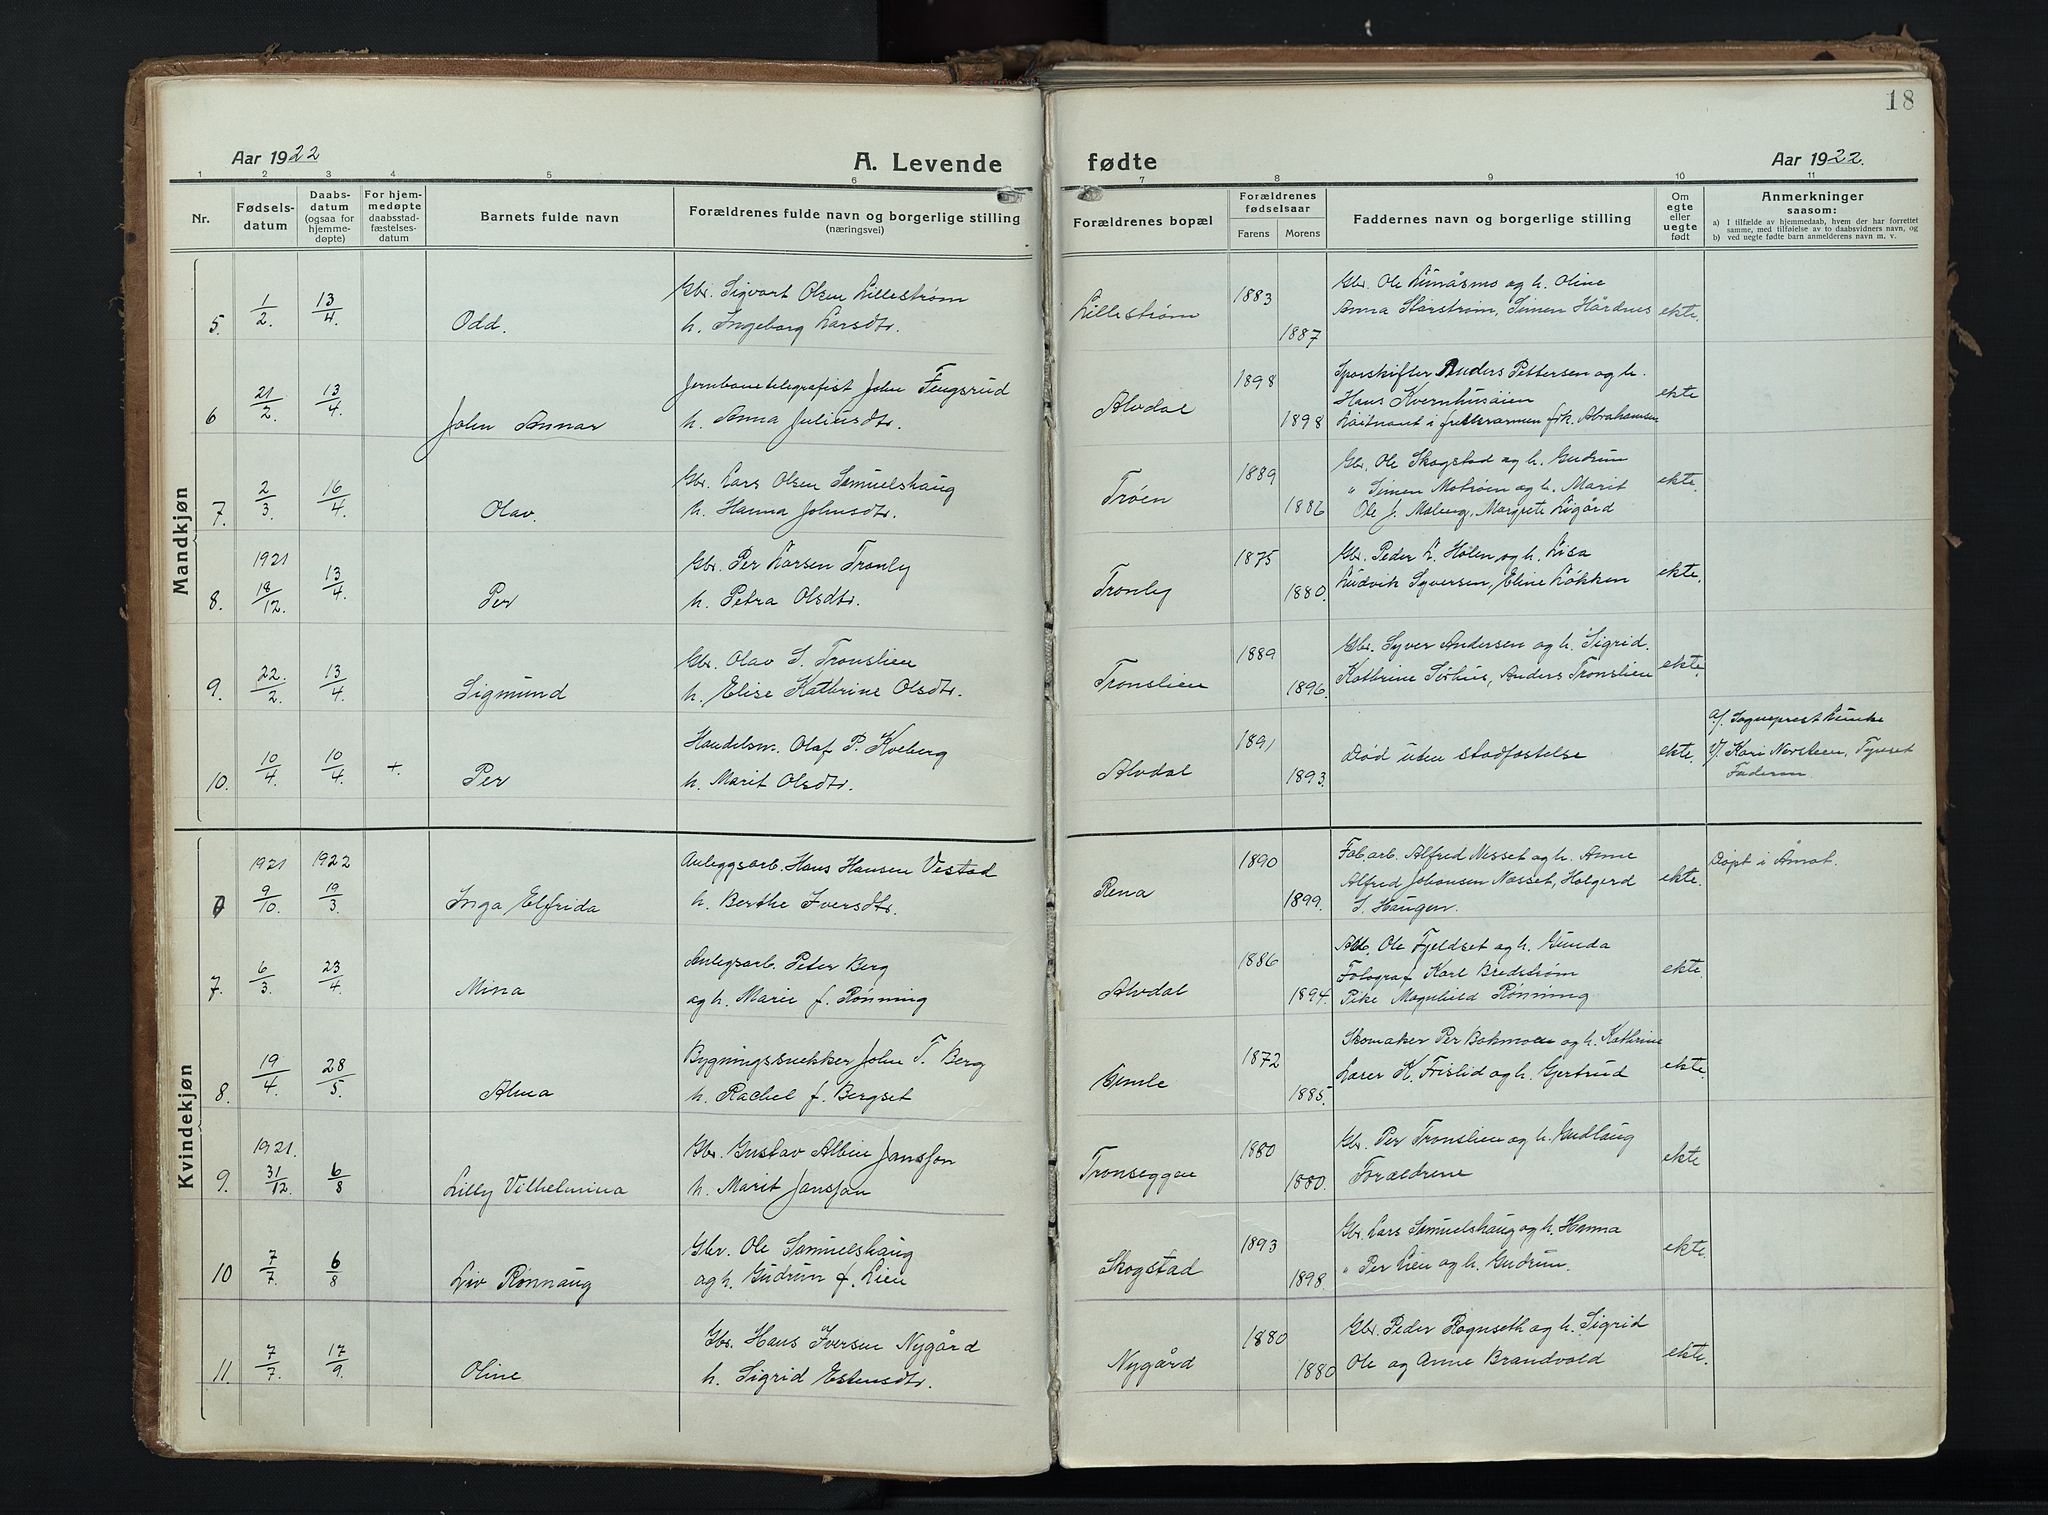 18
Aar 1922
A. Levende
fødte
Aar 1922.
1 2 3 4 5 6 7 8 9 10 11
Nr.
Fødsels-
datum
Daabs-
datum
(ogsaa for
hjemme-
døpte)
For hjem-
medøpte
daabsstad-
fæstelses-
datum
Barnets fulde navn
Forældrenes fulde navn og borgerlige stilling
(næringsvei)
Forældrenes bopæl
Forældrenes
fødselsaar
Farens Morens
Faddernes navn og borgerlige stilling
Om
egte
eller
uegte
født
Anmerkninger
saasom:
a) I tilfælde av hjemmedaab, hvem der har forrettet
samme, med tilføielse av to daabsvidners navn, og
b) ved uegte fødte barn anmelderens navn m. v.
Mandkjøn
5. 1/2. 13/4. Odd.
Gbr. Sigvart Olsen Lillestrøm
h. Ingeborg Larsdtr.
Lillestrøm 1883 1887
Gbr. Ole Lunåsmo og h. Oline
Anna Storstrøm, Simen Hårdnes
ekte.
6 21/2. 13/4. John Annar
Jernbanetelegrafist John Fengsrud
h. Anna Juliusdtr.
Alvdal 1898 1898
Sporskifter Anders Pettersen og h.
Hans Kvernhusøien
Løitnant i frelsesarmen frk. Abrahamsen
ekte
7. 2/3. 16/4. Olav.
Gbr. Lars Olsen Samuelshaug
h. Hanna Johnsdtr.
Trøen 1889 1886
Gbr. Ole Skogstad og h. Gudrun
" Simen Motrøen og h. Marit
Ole J. Moberg, Margrete Ligård
ekte.
8. 1921 18/12. 13/4. Per
Gbr. Per Larsen Tronby
h. Petra Olsdtr.
Tronby 1875 1880.
Gbr. Peder L. Holen og h. Lisa
Ludvik Syversen, Eline Løkken
ekte.
9. 22./2. 13/4. Sigmund
Gbr. Olav S. Tronslien
h. Elise Kathrine Olsdtr.
Tronslien 1889 1896.
Gbr. Syver Andersen og h. Sigrid.
Kathrine Sørhus, Anders Tronslien
ekte.
10. 10/4. 10/4. +. Per
Handelsm. Olaf P. Kveberg
h. Marit Olsdtr.
Alvdal 1891 1893.
Død uten stadfæstelse
ekte.
a/. Sogneprest Lunke
b/. Kari Norsteen, Tynset
Faderen
Kvindekjøn
6 1921 9/10. 1922 19/3. Inga Elfrida
Anleggsarb. Hans Hansen Vestad
h. Berthe Iversdtr.
Rena 1890 1899.
Fab.arb. Alfred Nesset og h. Anne
Alfred Johansen Næsset, Holgerd
S. Haugen.
ekte.
Døpt i Åmot.
7. 6/3. 23/4. Mina
Anlegsarb. Peter Berg
og h. Marie f. Rønning
Alvdal 1886 1894.
Arb. Ole Fjeldset og h. Gunda
Fotograf Karl Bredstrøm
Pike Magnhild Rønning
ekte.
8. 19/4. 28/5. Alma
Bygningssnekker John T. Berg
h. Rachel f. Bergset
1872 1885.
Skomaker Per Bakmoen og h. Kathrine
Lærer K. Frislid og h. Gjertrud
ekte.
9. 1921. 31/12. 6/8. Lilly Vilhelmina
Gbr. Gustav Albin Jansson
h. Marit Jansson
Tronseggen 1880 1880.
Gbr. Per Tronslien og h. Gudlaug
Forældrene
ekte
10 7/7. 6/8. Liv Rønnaug
Gbr. Ole Samuelshaug
og h. Gudrun f. Lien
Skogstad 1893 1898.
Gbr. Lars Samuelshaug og h. Hanna
" Per Lien og h. Gudrun.
ekte.
11. 7/7. 17/9. Oline
Gbr. Hans Iversen Nygård
h. Sigrid Estensdtr.
Nygård 1880 1880
Gbr. Peder Rognseth og h. Sigrid
Ole og Anne Brandvold
ekte.